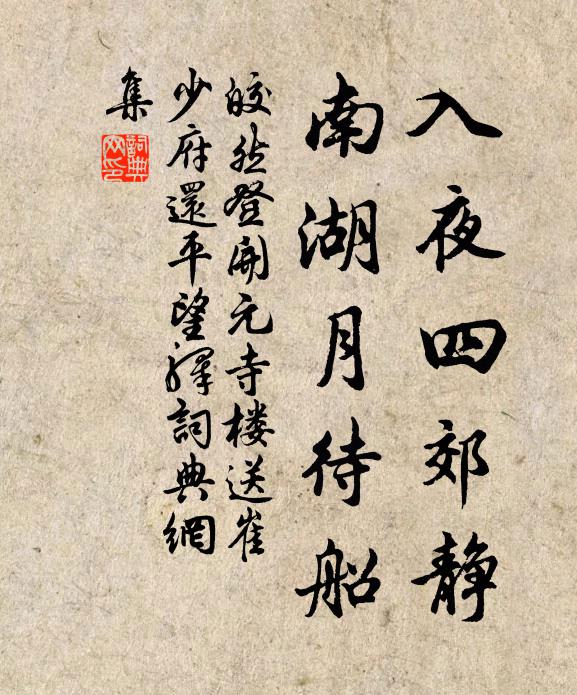 入夜四郊静
南湖月待船
皎然登開元寺楼送崔
少府還平望驛詞典網
集
詞典
网印